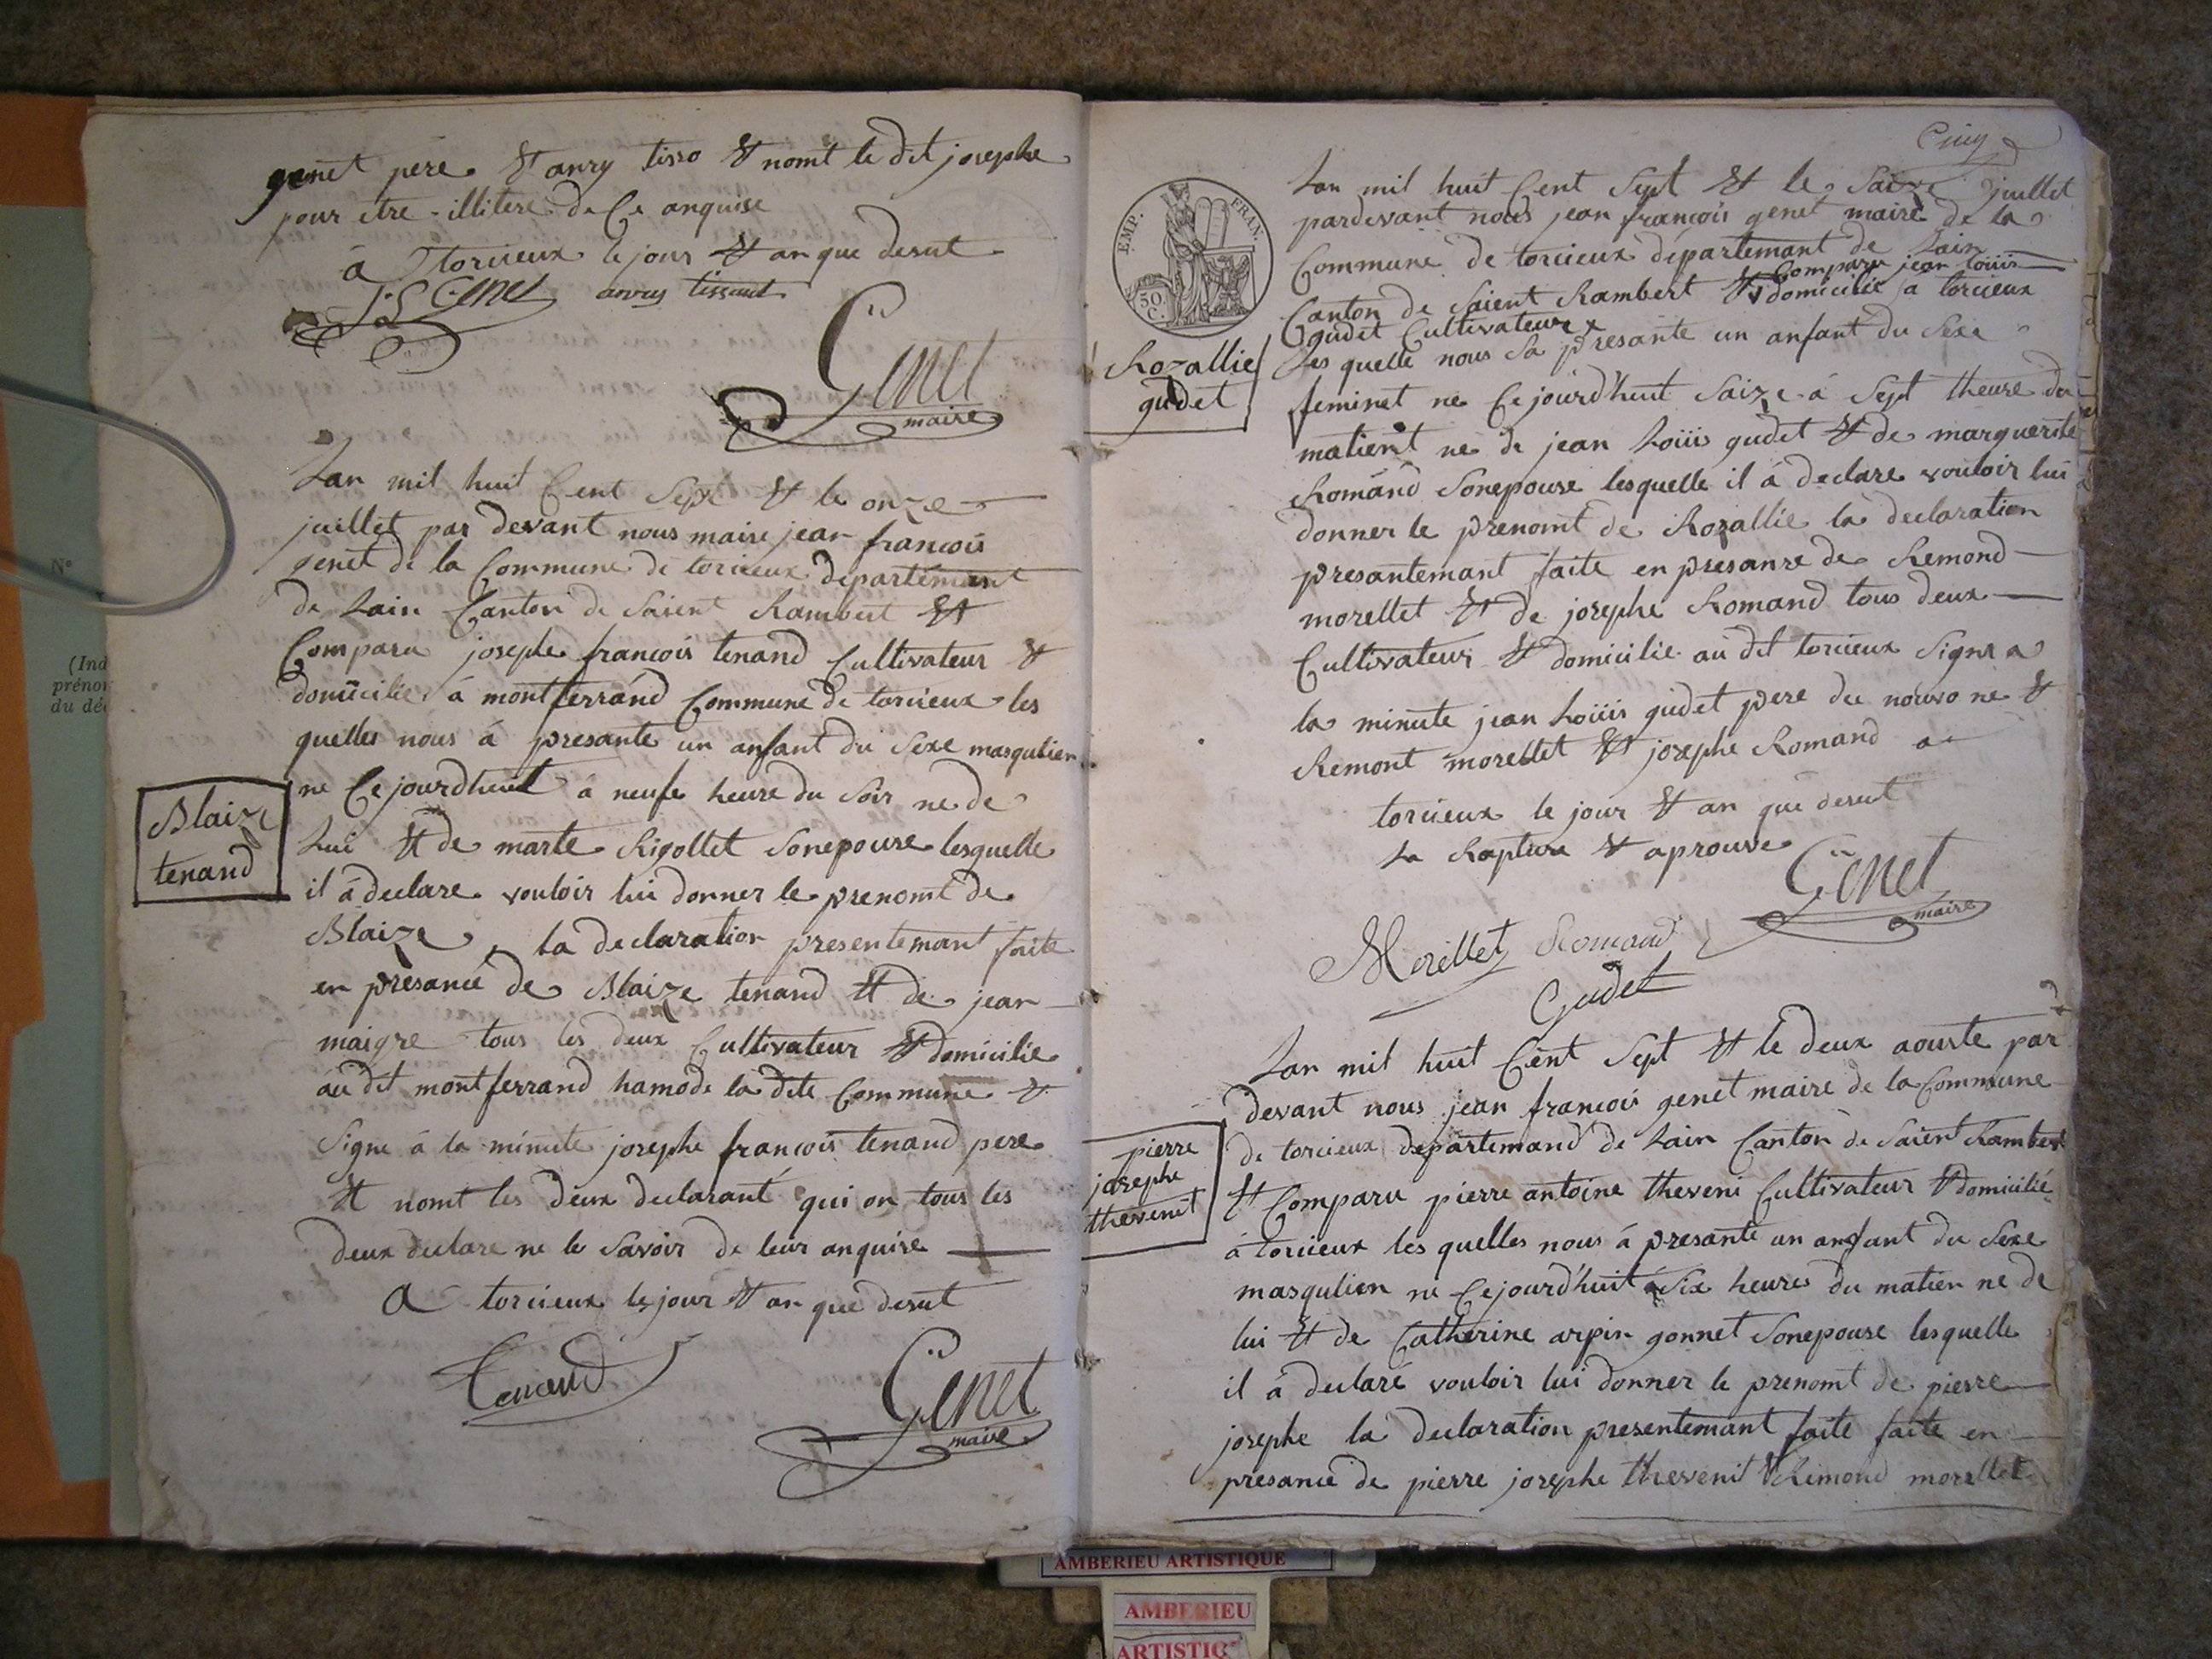 genet père & anry tisso & nomt le dit josephe
pour etre illitere de Ce anquise
à torcieux le jour & an que desut
J L Genet anry tissout
Genet
maire
Lan mil huit Cent Sept & le onze
juillet par devant nous maire jean françois
genet de la Commune de torcieux departémant
de Lain Canton de Saient Rambert &
Comparu josephe françois tenand Cultivateur &
domicilie à montferrand Commune de torcieux les
quelles nous à presante un anfant du Sexe masqulien
ne Ce jourdhuit à neufe heure du Soir ne de
Blaize
tenand
Lui & de marte Rigollet Sonepouse lesquelle
il à declare vouloir lui donner le prenomt de
Blaize la declaration presentemant faite
en présance de Blaize tenand & de jean
maigre tous les deux Cultivateur & domicilie
au dit montferrand hamode la dite Commune &
Signe à la minute josephe françois tenand pere
& nomt les deux declarant qui on tous les
deux declare ne le Savoir de leur anquise
A torcieux le jour & an que desut
tenand
Genet
maire
Cinq
EMP. FRAN.
50 C.
Lan mil huit Cent Sept & le Saize juillet
pardevant nous jean françois genet maire de la
Commune de torcieux département de Lain
Canton de Saient Rambert & Comparu jean Loüis
gudet Cultivateur & domicilie a torcieux
Rozallie
gudet
Les quelle nous La presante un anfant du Sexe
feminet ne Ce jourd'huit Saize à Sept theure du
matient ne de jean Loüis gudet & de marguerite
Romand Sonepouse lesquelle il à declare vouloir lui
donner le prenomt de Rozallie la declaration
presantemant faite en presanse de Remond
morellet & de josephe Romand tous deux
Cultivateur & domicilie au dit torcieux Signe a
la minute jean Loüis gudet pere du nouvo ne &
Remont morellet & josephe Romand a
torcieux le jour & an que desut
La Rapture & aprouve
Genet
maire
Morellet Romand
Gudet
Lan mil huit Cent Sept & le deux aouste par
devant nous jean françois genet maire de la Commune
de torcieux departemand de Lain Canton de Saient Rambert
pierre
josephe
thevenit
& Comparu pierre antoine theveni Cultivateur & domicilié
à torcieux les quelles nous à presante un anfant du Sexe
masqulien ne Ce jourd'huit à Six heures du matien ne de
lui & de Catherine arpin gonnet Sonepouse lesquelle
il à declaré vouloir lui donner le prenomt de pierre
josephe la declaration presentemant faite faite en
presance de pierre josephe thevenit & Rimond morellet
N°
(Ind
prénom
du déc
AMBERIEU ARTISTIQUE
AMBERIEU
ARTISTIQ